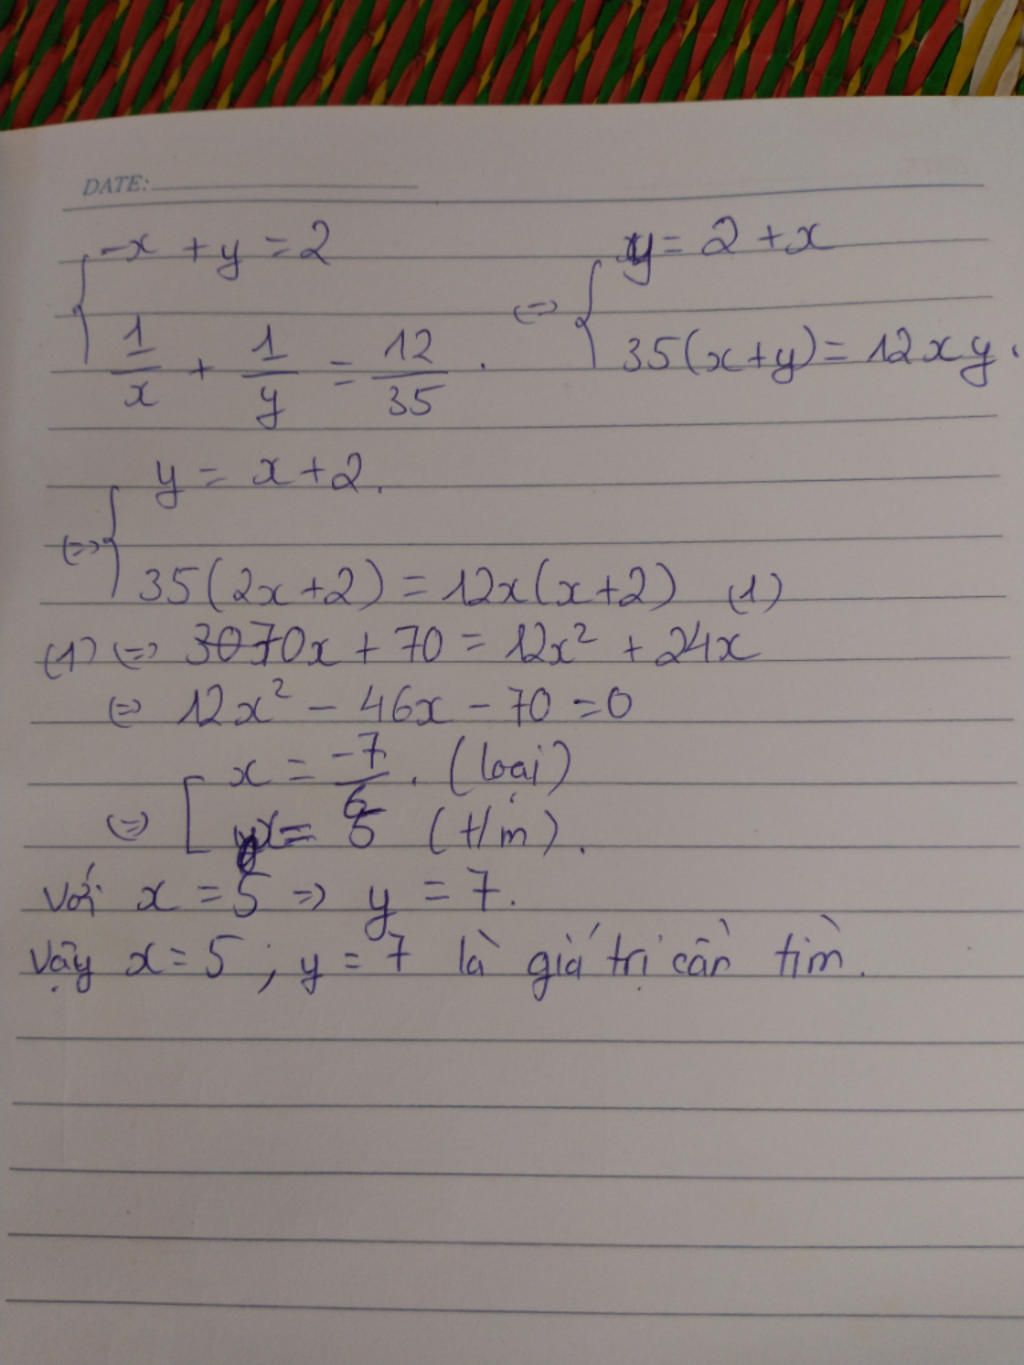 DATE:
-x + y = 2 y = 2 + x
⇔
1/x + 1/y = 12/35 . 35(x+y) = 12xy.
y = x + 2.
⇔
35(2x+2) = 12x(x+2) (1)
(1) ⇔ 3070x + 70 = 12x² + 24x
⇔ 12x² - 46x - 70 = 0
x = -7/6 . (loại)
⇔ x = 5 (t/m).
Với x = 5 ⇒ y = 7.
Vậy x = 5 ; y = 7 là giá trị cần tìm.